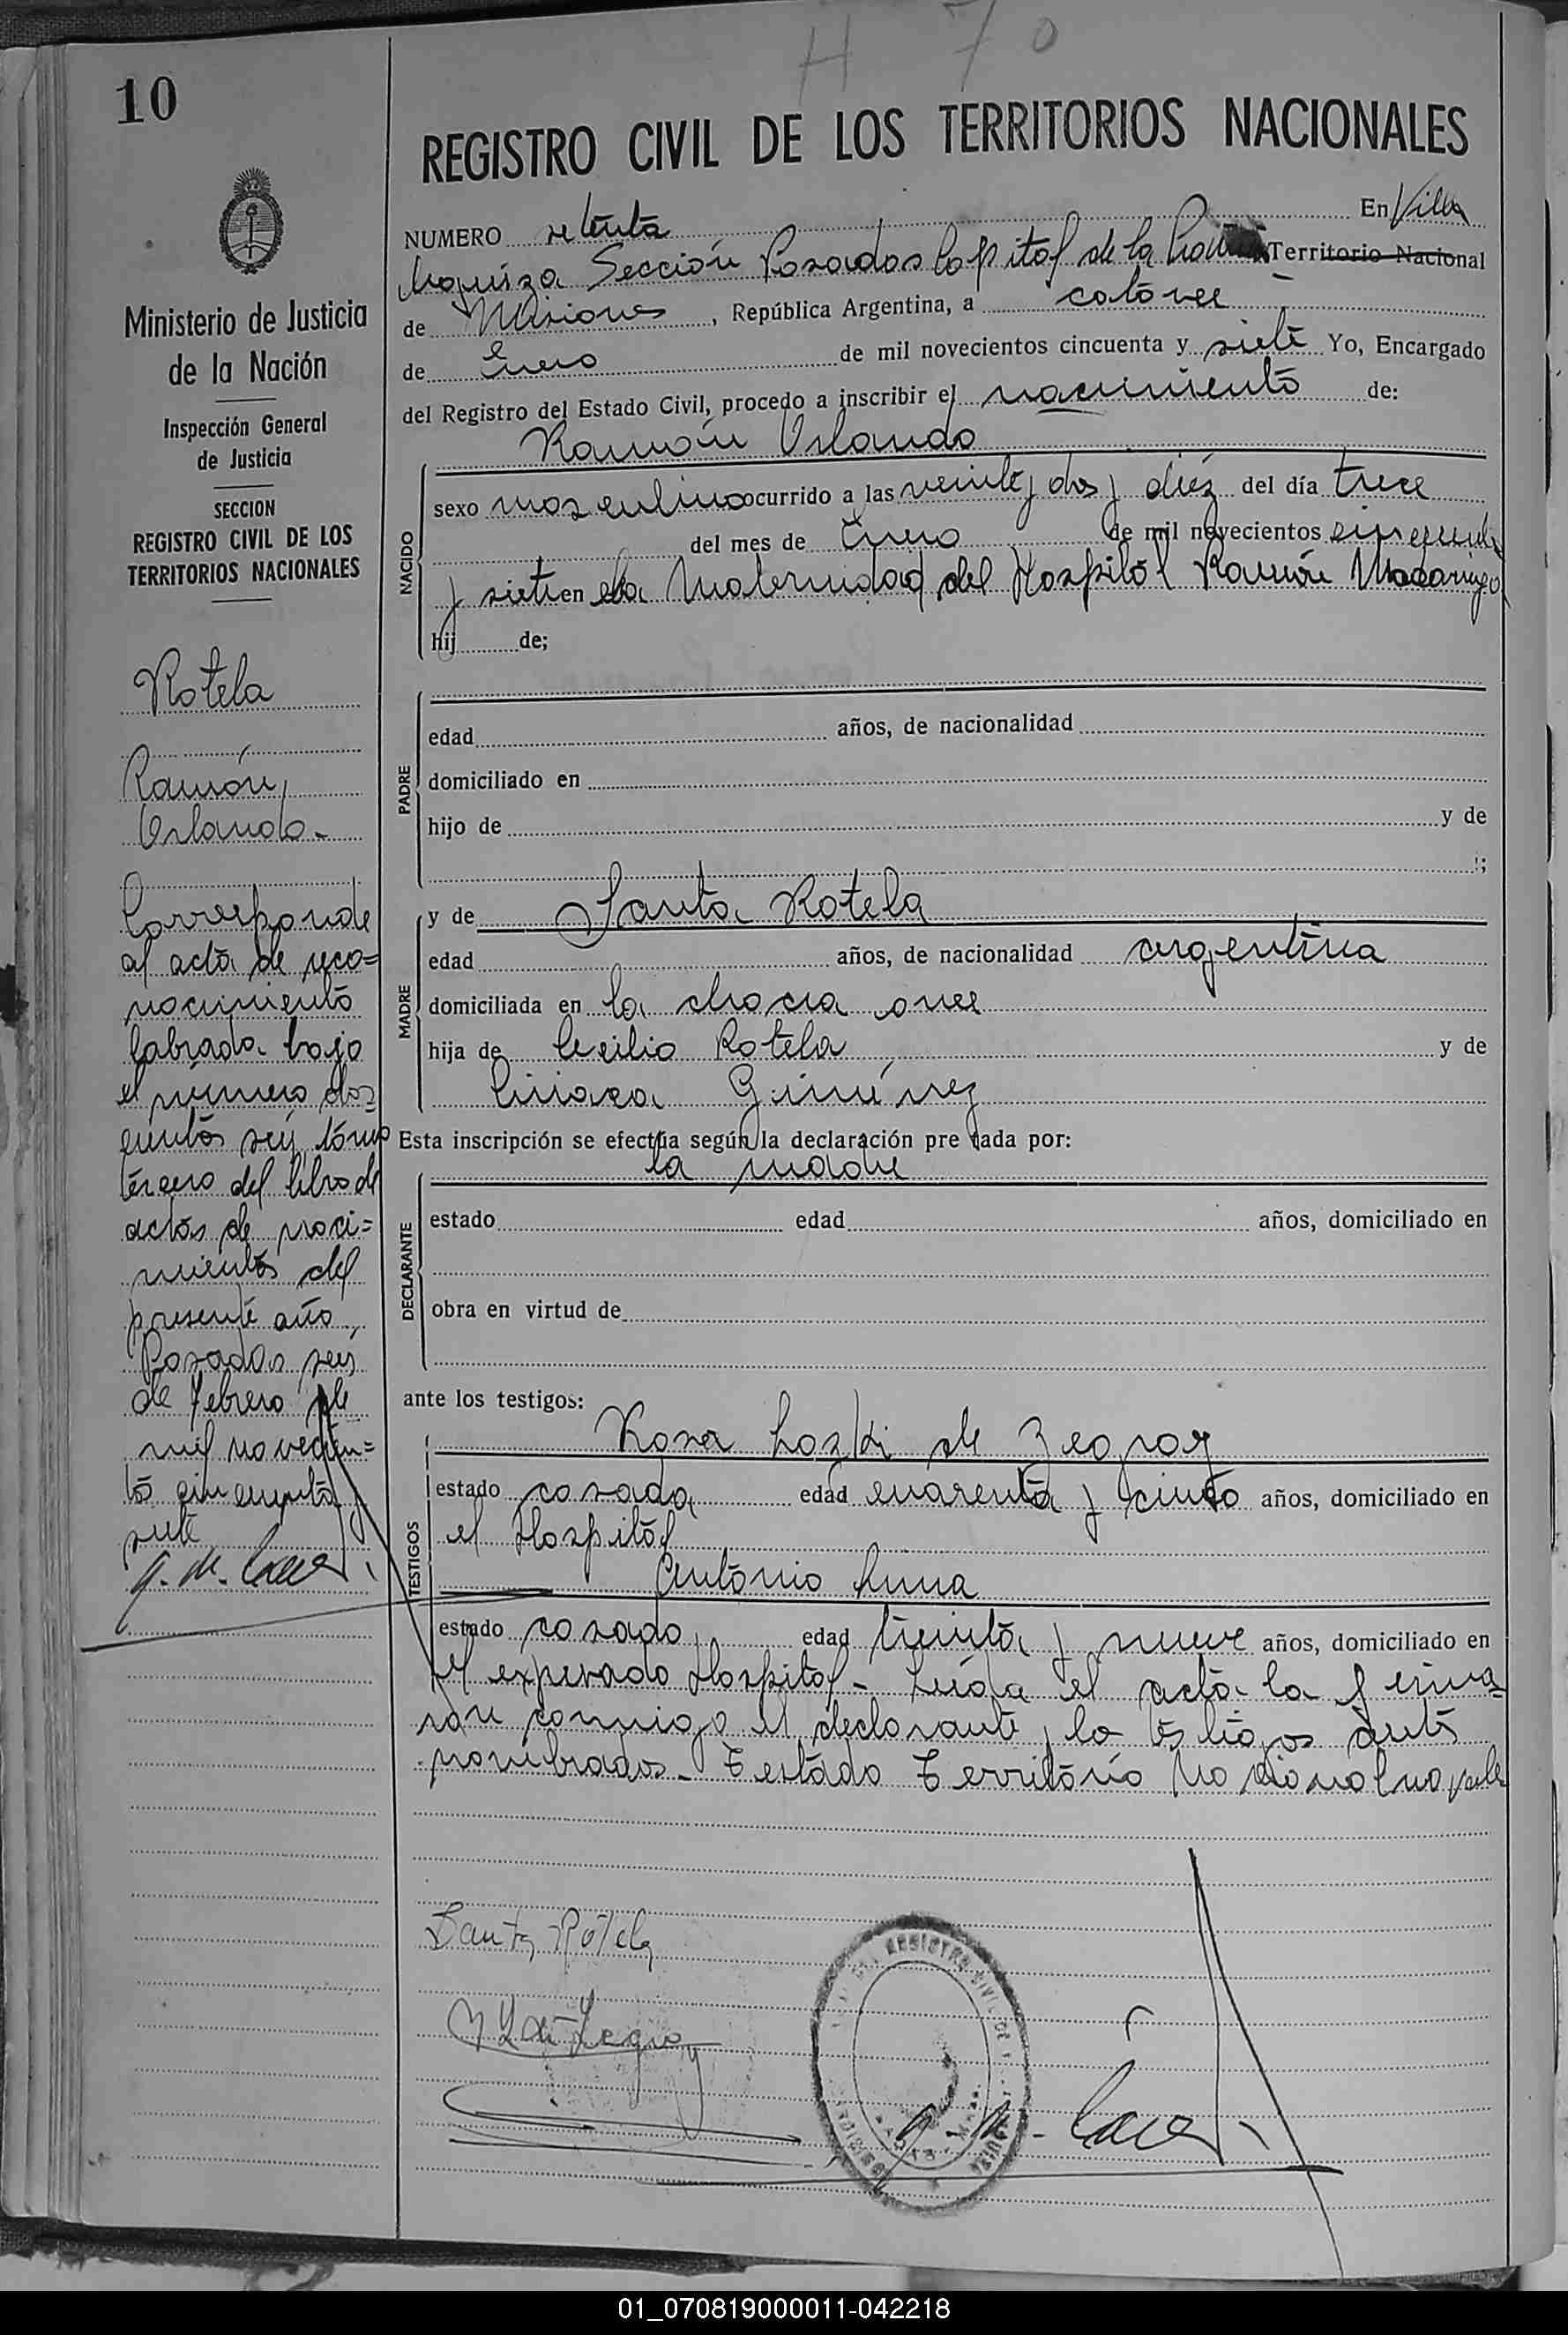 H 70
10
REGISTRO CIVIL DE LOS TERRITORIOS NACIONALES
NUMERO setenta En Villa
Urquiza Sección Posadas Capital de la Territorio Nacional
de Misiones, República Argentina, a catorce
de Enero de mil novecientos cincuenta y siete Yo, Encargado
del Registro del Estado Civil, procedo a inscribir el nacimiento de:
Ramón Orlando
NACIDO
sexo masculino ocurrido a las veinte y dos y diez del día trece
del mes de Enero de mil novecientos cincuenta
y siete en la Maternidad del Hospital Ramón Madariaga
hij de;
PADRE
edad años, de nacionalidad
domiciliado en
hijo de y de
;
MADRE
y de Santa Rotela
edad años, de nacionalidad argentina
domiciliada en la chacra once
hija de Cecilio Rotela y de
Ciriaca Giménez
Esta inscripción se efectúa según la declaración pre tada por:
la madre
DECLARANTE
estado edad años, domiciliado en
obra en virtud de
ante los testigos:
TESTIGOS
Rosa de
estado casada edad cuarenta y cinco años, domiciliado en
el Hospital
Antonio Luna
estado casado edad treinta y nueve años, domiciliado en
el expresado Hospital - Leída el acta la firma=
ron conmigo el declarante y lo testigos antes
nombrados - Testado Territorio Nacional no vale
Santa Rotela
REGISTRO CIVIL
Ministerio de Justicia
de la Nación
Inspección General
de Justicia
SECCION
REGISTRO CIVIL DE LOS
TERRITORIOS NACIONALES
Rotela
Ramón
Orlando.
Corresponde
al acta de reco=
nocimiento
labrada bajo
el número dos=
cientos seis tomo
tercero del libro de
actas de naci=
mientos del
presente año,
Posadas seis
de Febrero de
mil novecien=
to cincuenta y
siete
01_070819000011-042218